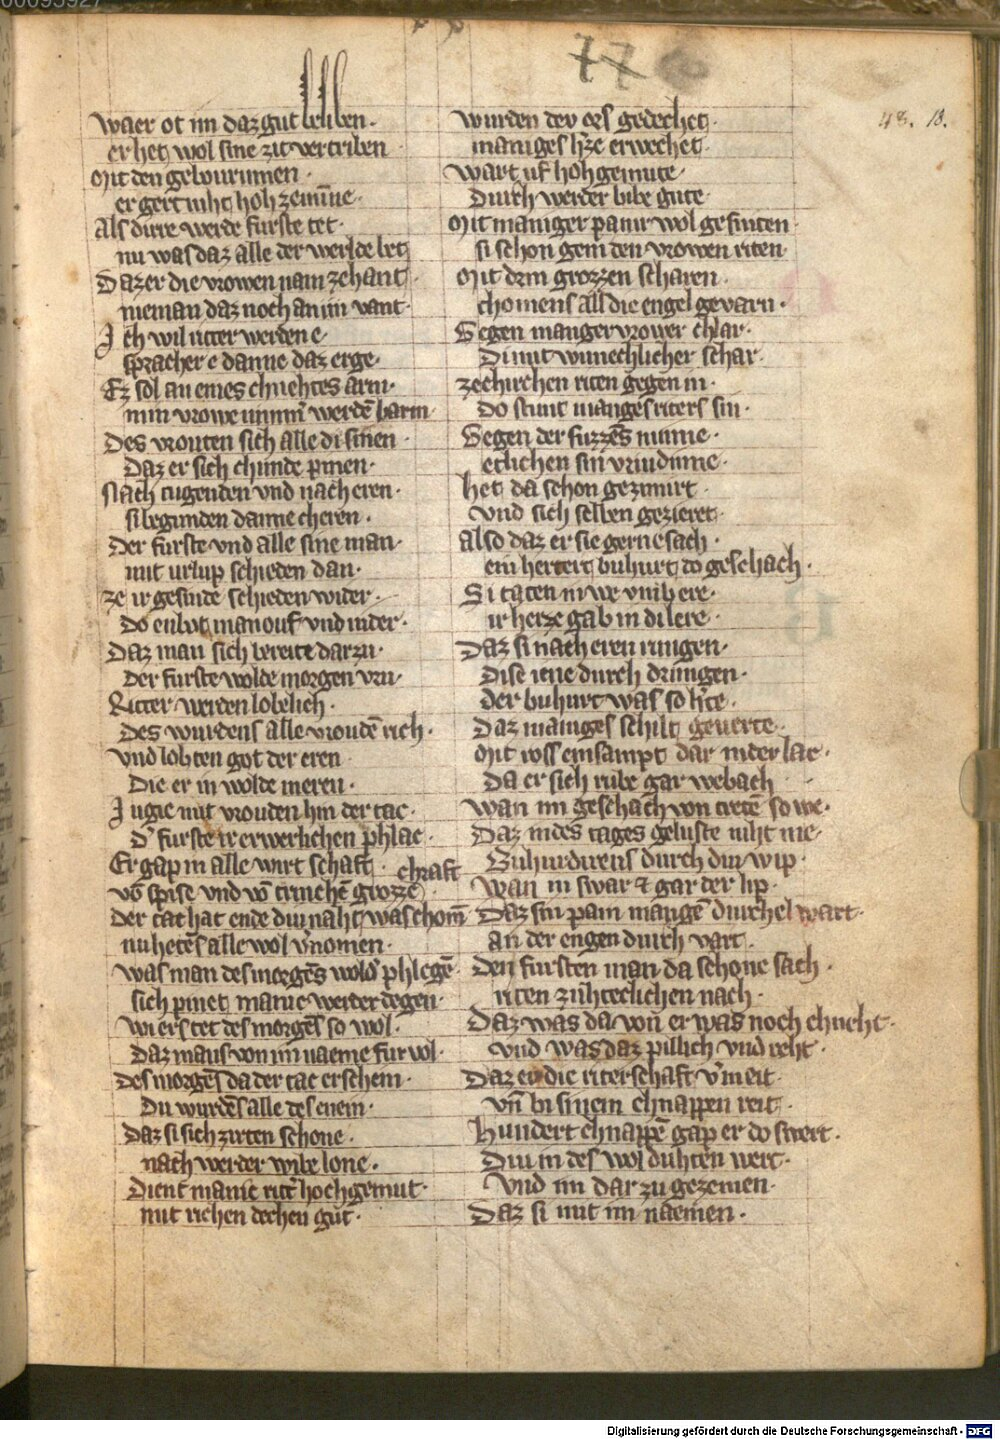 77
48. 18.
Waer ot im daz gut beliben·
er het wol sine zit vertriben
Mit den gebourinnen·
er gert niht hoh zeminne·
Als dirre werde furste tet·
nu was daz alle der werlde bet
Daz er die vrowen nam zehant
nieman daz noch an im vant·
Ich wil ritter werden e·
spracher e danne daz erge·
Ez sol an eines chnehtes arm·
min vrowe nimm̄ werdē barm·
Des vrouten sich alle di sinen·
Daz er sich chunde pinen·
Nach tugenden vnd nach eren·
si begunden danne cheren·
Der furste vnd alle sine man·
mit urlup schieden dan·
ze ir gesinde schieden wider·
Do enbot man ouf vnd nider·
Daz man sich bereite darzu·
der furste wolde morgen vru·
Ritter werden lobelich·
des wurdens alle vroudē rich·
vnd lobten got der eren
Die er in wolde meren·
Jugie mit vrouden hin der tac·
D' furste ir erwerlichen phlac·
Er gap in alle wirtschaft·
chraft
vō spise vnd vō trinchē grozze
der tac hat ende diu naht was chom̄
nu hetēs alle wol v'nomen·
was man des morgēs wold' phlegē
sich pinet manic werder degen·
wi ers tet des morgēs so wol·
Daz mans von im naeme fur vol·
des morgēs da der tac erschein·
Du wurdēs alle des enein·
Daz si sich zirten schone·
nach werder wibe lone·
Dient manic ritt' hochgemut·
mit richen dechen gut·
wurden dev ors gedechet·
maniges h'ze erwechet·
wart uf hohgemute·
Durch werder wibe gute·
Mit maniger panir wol gesniten·
si schon gein den vrowen riten·
Mit drin grozzen scharn·
chomens all die engel gevarn·
Gegen maniger vrower chlar·
Di mit wunechlicher schar·
zechirchen riten gegen in·
do stunt maniges riters sin·
Gegen der suzzēs minne·
etlichen sin vriudinne·
het da schon gezimirt·
vnd sich selben gezieret·
also daz er sie gerne sach·
ein herter buhurt do geschach·
Si taten in we vmb ere·
ir herze gab in di lere·
Daz si nach eren rungen·
Dise iene durch drungen·
der buhurt was so h'te·
Daz maniges schilt geuerte·
Mit ross ensampt dar nider lac·
Da er sich rube gar webach
wan im geschach von tretē so we·
Daz in des tages geluste niht me·
Buhurdirens durch diu wip·
wan in swar & gar der lip·
Daz sin pain mangē durchel wart·
an der engen durch vart·
den fursten man da schone sach·
riten zuhteclichen nach·
Daz was da von er was noch chneht·
vnd was daz pillich vnd reht·
Daz er die riterschaft v'meit·
vn̄ bi sinem chnappen reit·
Hundert chnappē gap er do swert·
Diu in des wol duhten wert·
vnd im dar zu gezemen·
Daz si mit im naemen·
Digitalisierung gefördert durch die Deutsche Forschungsgemeinschaft - DFG